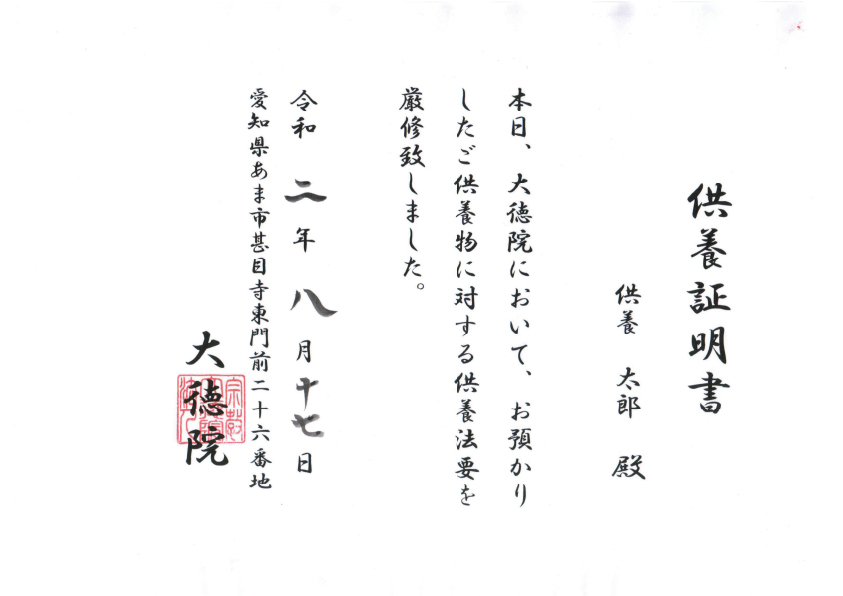 供養証明書
供養 太郎 殿
本日、大徳院において、お預かり
したご供養物に対する供養法要を
厳修致しました。
令和 二 年 八 月 十七 日
愛知県あま市甚目寺東門前二十六番地
大徳院